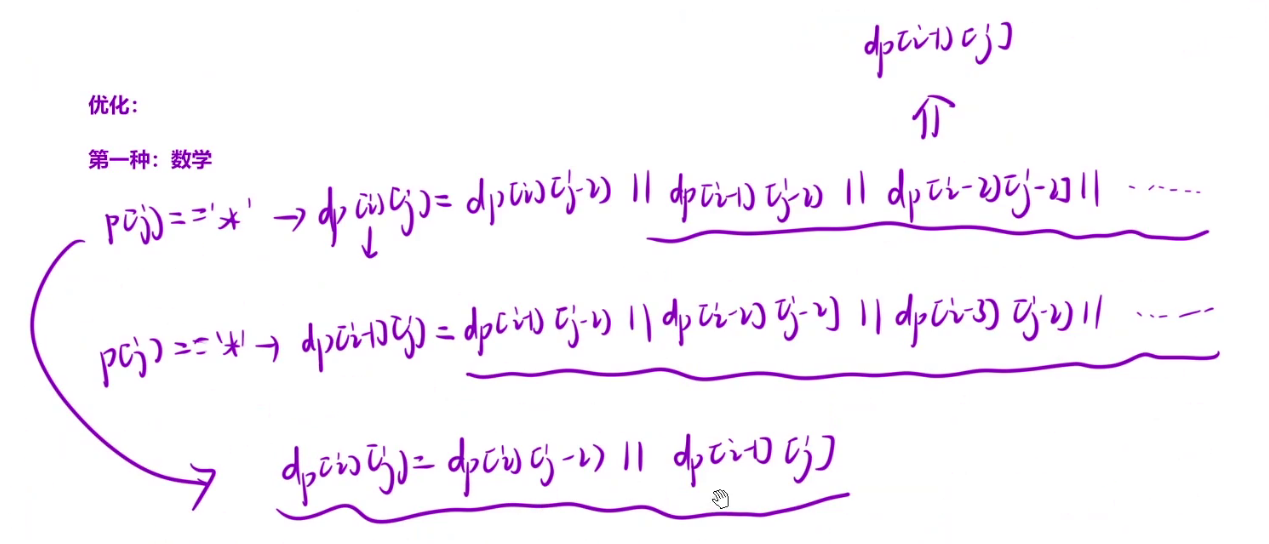 dp[i-1][j]
优化：
第一种：数学
p[j]=='*' → dp[i][j]= dp[i][j-2] || dp[i-1][j-2] || dp[i-2][j-2] || ......
p[j]=='*' → dp[i-1][j]= dp[i-1][j-2] || dp[i-2][j-2] || dp[i-3][j-2] || ......
dp[i][j]= dp[i][j-2] || dp[i-1][j]